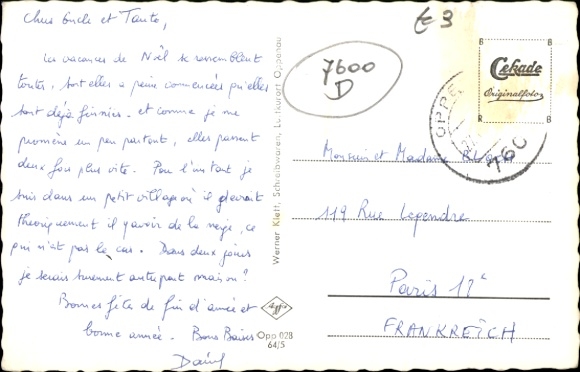 Chers Oncle et Tante,
Les vacances de Noël se ressemblent
toutes, sont elles a peine commencées qu'elles
sont déjà finies. et comme je me
promène un peu partout, elles passent
deux fois plus vite. Pour l'instant je
suis dans un petit village où il devrait
théoriquement il y avoir de la neige, ce
qui n'est pas le cas. Dans deux jours
je serais surement autre part
Bonnes fêtes de fin d'année et
bonne année. Bons Baisers
7600
D
Werner Klett, Schreibwaren, Luftkurort Oppenau
Agfa
Opp 028
64/5
B B
Cekade
Originalfoto
R B
OPPE
760
Monsieur et Madame
119 Rue
Paris 12e
FRANKREICH